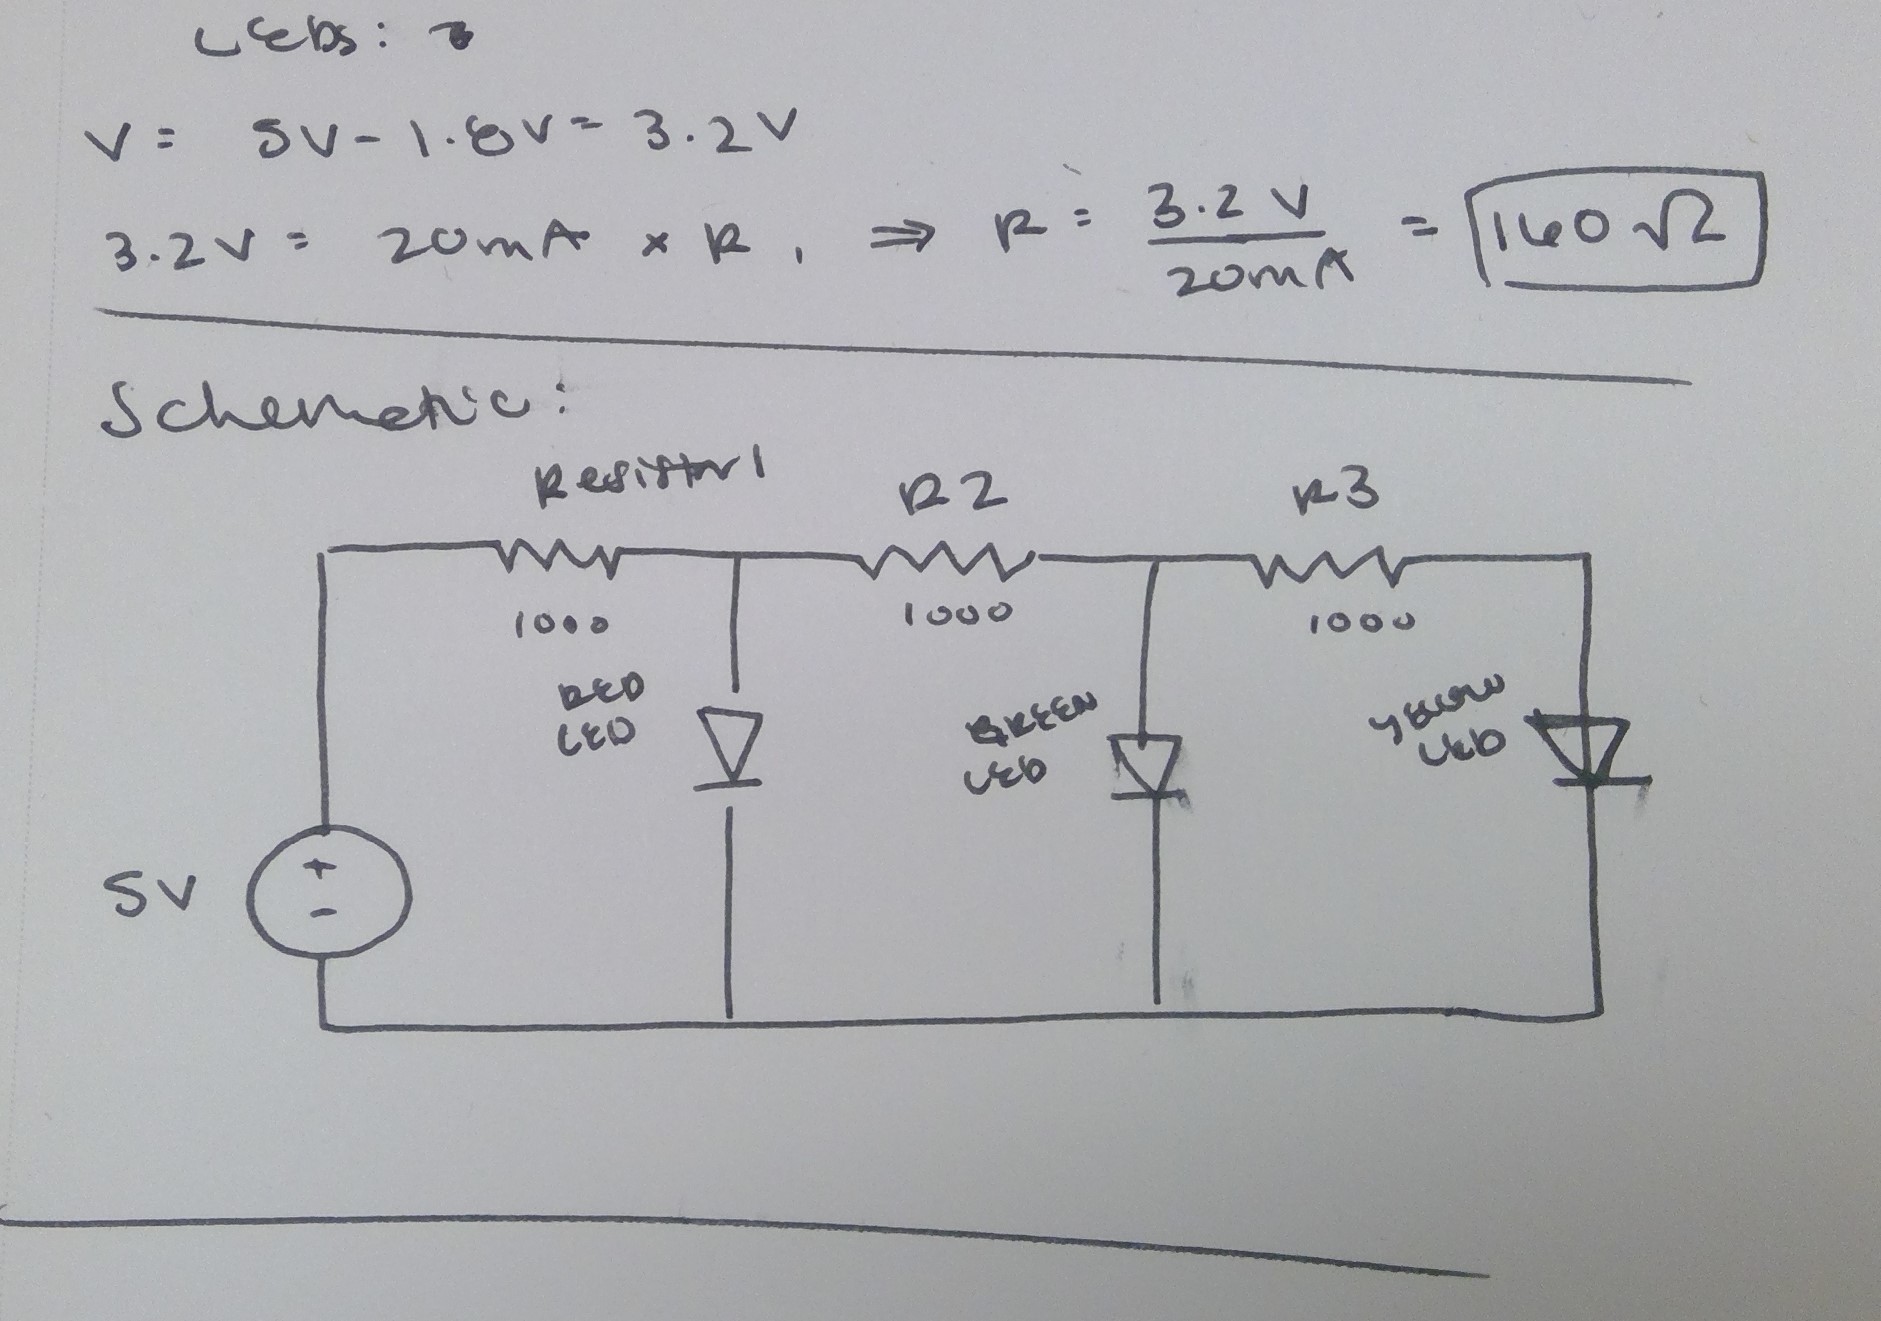 LEDs: 3
V = 5V - 1.8V = 3.2V
3.2V = 20mA × R, ⇒ R = 3.2V / 20mA = 160 Ω
Schematic:
Resistor 1
R2
R3
1000
1000
1000
RED
LED
GREEN
LED
YELLOW
LED
5V
+
-